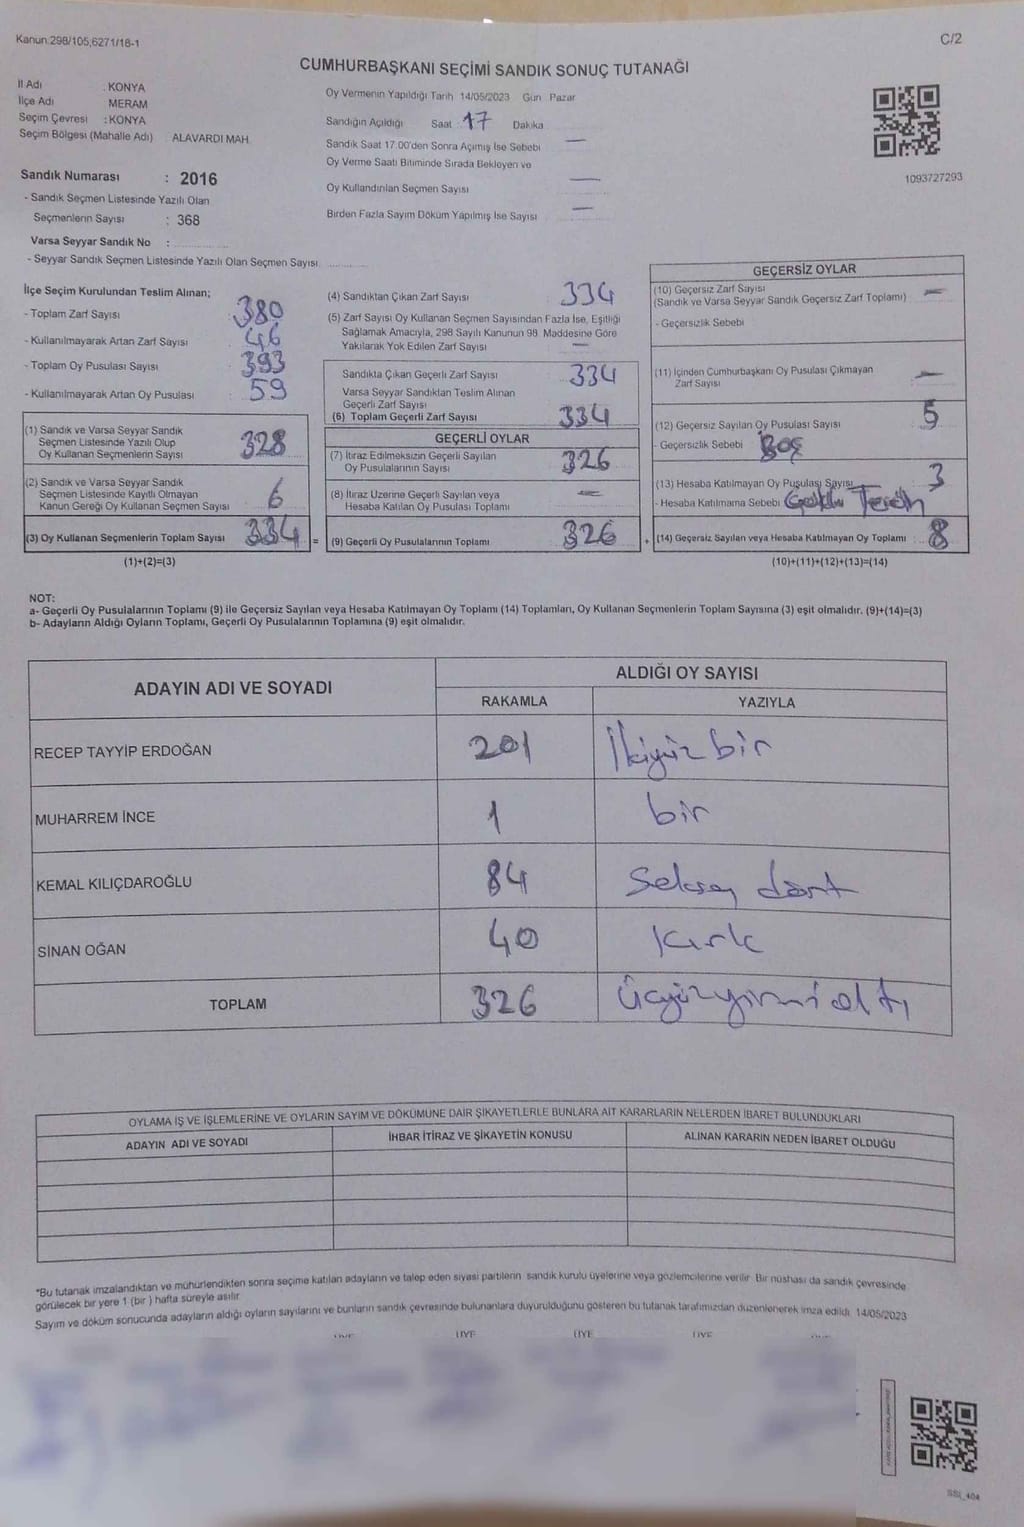 Kanun:298/105,6271/18-1
C/2
CUMHURBAŞKANI SEÇİMİ SANDIK SONUÇ TUTANAĞI
İl Adı : KONYA
İlçe Adı MERAM
Seçim Çevresi : KONYA
Seçim Bölgesi (Mahalle Adı) ALAVARDI MAH.
Sandık Numarası : 2016
- Sandık Seçmen Listesinde Yazılı Olan
Seçmenlerin Sayısı : 368
Varsa Seyyar Sandık No :
- Seyyar Sandık Seçmen Listesinde Yazılı Olan Seçmen Sayısı
Oy Vermenin Yapıldığı Tarih 14/05/2023 Gün Pazar
Sandığın Açıldığı Saat 17 Dakika
Sandık Saat 17.00'den Sonra Açımış İse Sebebi —
Oy Verme Saati Bitiminde Sırada Bekleyen ve
Oy Kullandırılan Seçmen Sayısı —
Birden Fazla Sayım Döküm Yapılmış İse Sayısı —
1093727293
İlçe Seçim Kurulundan Teslim Alınan;
- Toplam Zarf Sayısı 380
- Kullanılmayarak Artan Zarf Sayısı 46
- Toplam Oy Pusulası Sayısı 393
- Kullanılmayarak Artan Oy Pusulası 59
(1) Sandık ve Varsa Seyyar Sandık
Seçmen Listesinde Yazılı Olup
Oy Kullanan Seçmenlerin Sayısı 328
(2) Sandık ve Varsa Seyyar Sandık
Seçmen Listesinde Kayıtlı Olmayan
Kanun Gereği Oy Kullanan Seçmen Sayısı 6
(3) Oy Kullanan Seçmenlerin Toplam Sayısı 334 =
(1)+(2)=(3)
(4) Sandıktan Çıkan Zarf Sayısı 334
(5) Zarf Sayısı Oy Kullanan Seçmen Sayısından Fazla İse, Eşitliği
Sağlamak Amacıyla, 298 Sayılı Kanunun 98. Maddesine Göre
Yakılarak Yok Edilen Zarf Sayısı —
Sandıkta Çıkan Geçerli Zarf Sayısı 334
Varsa Seyyar Sandıktan Teslim Alınan
Geçerli Zarf Sayısı
(6) Toplam Geçerli Zarf Sayısı 334
GEÇERLİ OYLAR
(7) İtiraz Edilmeksizin Geçerli Sayılan
Oy Pusulalarının Sayısı 326
(8) İtiraz Üzerine Geçerli Sayılan veya
Hesaba Katılan Oy Pusulası Toplamı —
(9) Geçerli Oy Pusulalarının Toplamı 326 +
GEÇERSİZ OYLAR
(10) Geçersiz Zarf Sayısı
(Sandık ve Varsa Seyyar Sandık Geçersiz Zarf Toplamı) —
- Geçersizlik Sebebi
(11) İçinden Cumhurbaşkanı Oy Pusulası Çıkmayan
Zarf Sayısı —
(12) Geçersiz Sayılan Oy Pusulası Sayısı 5
- Geçersizlik Sebebi Boş
(13) Hesaba Katılmayan Oy Pusulası Sayısı 3
- Hesaba Katılmama Sebebi
(14) Geçersiz Sayılan veya Hesaba Katılmayan Oy Toplamı 8
(10)+(11)+(12)+(13)=(14)
NOT:
a- Geçerli Oy Pusulalarının Toplamı (9) ile Geçersiz Sayılan veya Hesaba Katılmayan Oy Toplamı (14) Toplamları, Oy Kullanan Seçmenlerin Toplam Sayısına (3) eşit olmalıdır. (9)+(14)=(3)
b- Adayların Aldığı Oyların Toplamı, Geçerli Oy Pusulalarının Toplamına (9) eşit olmalıdır.
ADAYIN ADI VE SOYADI
ALDIĞI OY SAYISI
RAKAMLA YAZIYLA
RECEP TAYYİP ERDOĞAN 201 İkiyüz bir
MUHARREM İNCE 1 bir
KEMAL KILIÇDAROĞLU 84 Seksen dört
SİNAN OĞAN 40 Kırk
TOPLAM 326 üçyüzyirmi altı
OYLAMA İŞ VE İŞLEMLERİNE VE OYLARIN SAYIM VE DÖKÜMÜNE DAİR ŞİKAYETLERLE BUNLARA AİT KARARLARIN NELERDEN İBARET BULUNDUKLARI
ADAYIN ADI VE SOYADI İHBAR İTİRAZ VE ŞİKAYETİN KONUSU ALINAN KARARIN NEDEN İBARET OLDUĞU
*Bu tutanak imzalandıktan ve mühürlendikten sonra seçime katılan adayların ve talep eden siyasi partilerin sandık kurulu üyelerine veya gözlemcilerine verilir. Bir nüshası da sandık çevresinde
görülecek bir yere 1 (bir) hafta süreyle asılır.
Sayım ve döküm sonucunda adayların aldığı oyların sayılarını ve bunların sandık çevresinde bulunanlara duyurulduğunu gösteren bu tutanak tarafımızdan düzenlenerek imza edildi. 14/05/2023
ÜYE ÜYE ÜYE ÜYE
SSİ_404